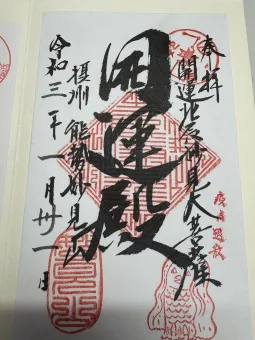 奉拝
開運北辰妙見大菩薩
開運殿
摂州 能勢妙見山
令和三年一月廿一日
疫病退散